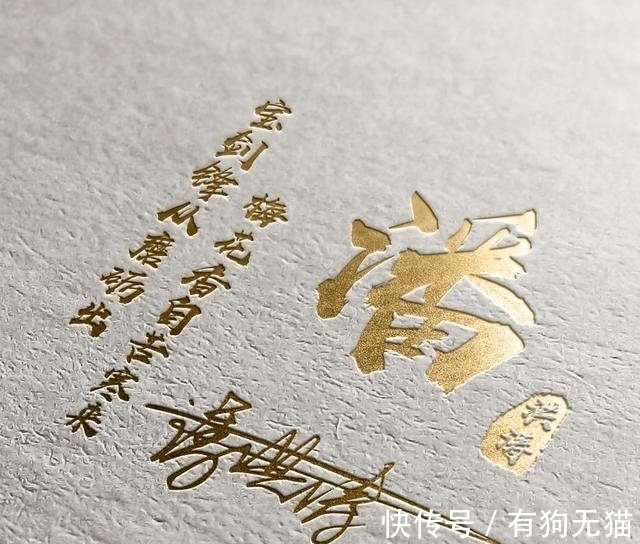 宝剑锋从磨砺出
梅花香自苦寒来
潘
洪涛
快传号 / 有狗无猫